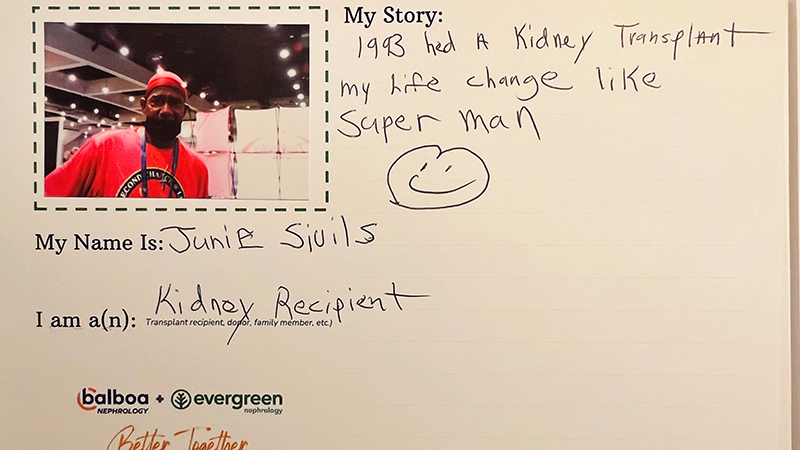 My Story:
1993 hed A Kidney Transplant
my Life change like
Super man
SECOND CHANCE
My Name Is: Junie Sjuils
I am a(n): Kidney Recipient
Transplant recipient, donor, family member, etc.)
balboa + evergreen
NEPHROLOGY nephrology
Better Together